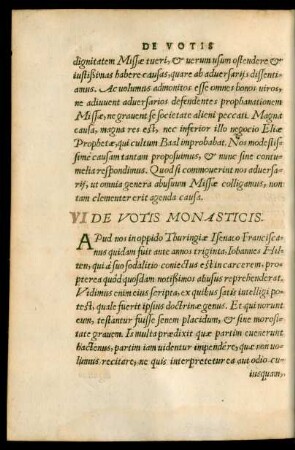 DE VOTIS
dignitatem Missæ tueri, & uerum usum ostendere &
iustißimas habere causas, quare ab aduersarijs dissenti-
amus. Ac uolumus admonitos esse omnes bonos uiros,
ne adiuuent aduersarios defendentes prophanationem
Missæ, ne grauent se societate alieni peccati. Magna
causa, magna res est, nec inferior illo negocio Eliæ
Prophetæ, qui cultum Baal improbabat. Nos modestis-
sime causam tantam proposuimus, & nunc sine contu-
melia respondimus. Quod si commouerint nos aduersa-
rij, ut omnia genera abusuum Missæ colligamus, non
tam clementer erit agenda causa.
VI DE VOTIS MONASTICIS.
APud nos in oppido Thuringiæ Isenaco Francisca-
nus quidam fuit ante annos triginta, Iohannes Hil-
ten, qui à suo sodalitio coniectus est in carcerem, pro-
pterea quòd quosdam notißimos abusus reprehenderat.
Vidimus enim eius scripta, ex quibus satis intelligi po-
test, quale fuerit ipsius doctrinæ genus. Et qui norunt
eum, testantur fuisse senem placidum, & sine morosi-
tate grauem. Is multa prædixit quæ partim euenerunt
hactenus, partim iam uidentur impendêre, quæ non uo-
lumus recitare, ne quis interpretetur ea aut odio cu-
iusquam,